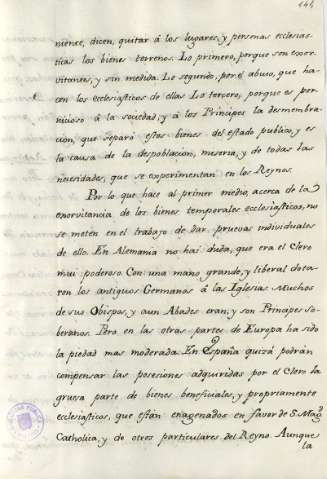 144
niente, dicen, quitar á los lugares, y personas eclesias-
ticas los bienes terrenos. Lo primero, porque son exor-
vitantes, y sin medida. Lo segundo, por el abuso, que ha-
cen los eclesiasticos de ellas. Lo tercero, porque es per-
nicioso á la sociedad, y á los Principes la desmembra-
cion, que separó estos bienes del estado publico, y es
la causa de la despoblacion, miseria, y de todas las
necesidades, que se experimentan en los Reynos.
Por lo que hace al primer medio, acerca de la
exorvitancia de los bienes temporales ecclesiasticos, no
se meten en el trabajo de dar pruevas individuales
de ello. En Alemania no hai duda, que era el Clero
mui poderoso. Con una mano grande, y liberal dota-
ron los antiguos Germanos á las Iglesias. Muchos
de sus Obispos, y aun Abades eran, y son Principes So-
beranos. Pero en las otras partes de Europa ha sido
la piedad mas moderada. En España quizá podrán
compensar las posesiones adquiridas por el Clero la
gruesa parte de bienes beneficiales, y propriamente
ecclesiasticos, que están enagenados en favor de S. Magd
Catholica, y de otros particulares del Reyno. Aunque
la